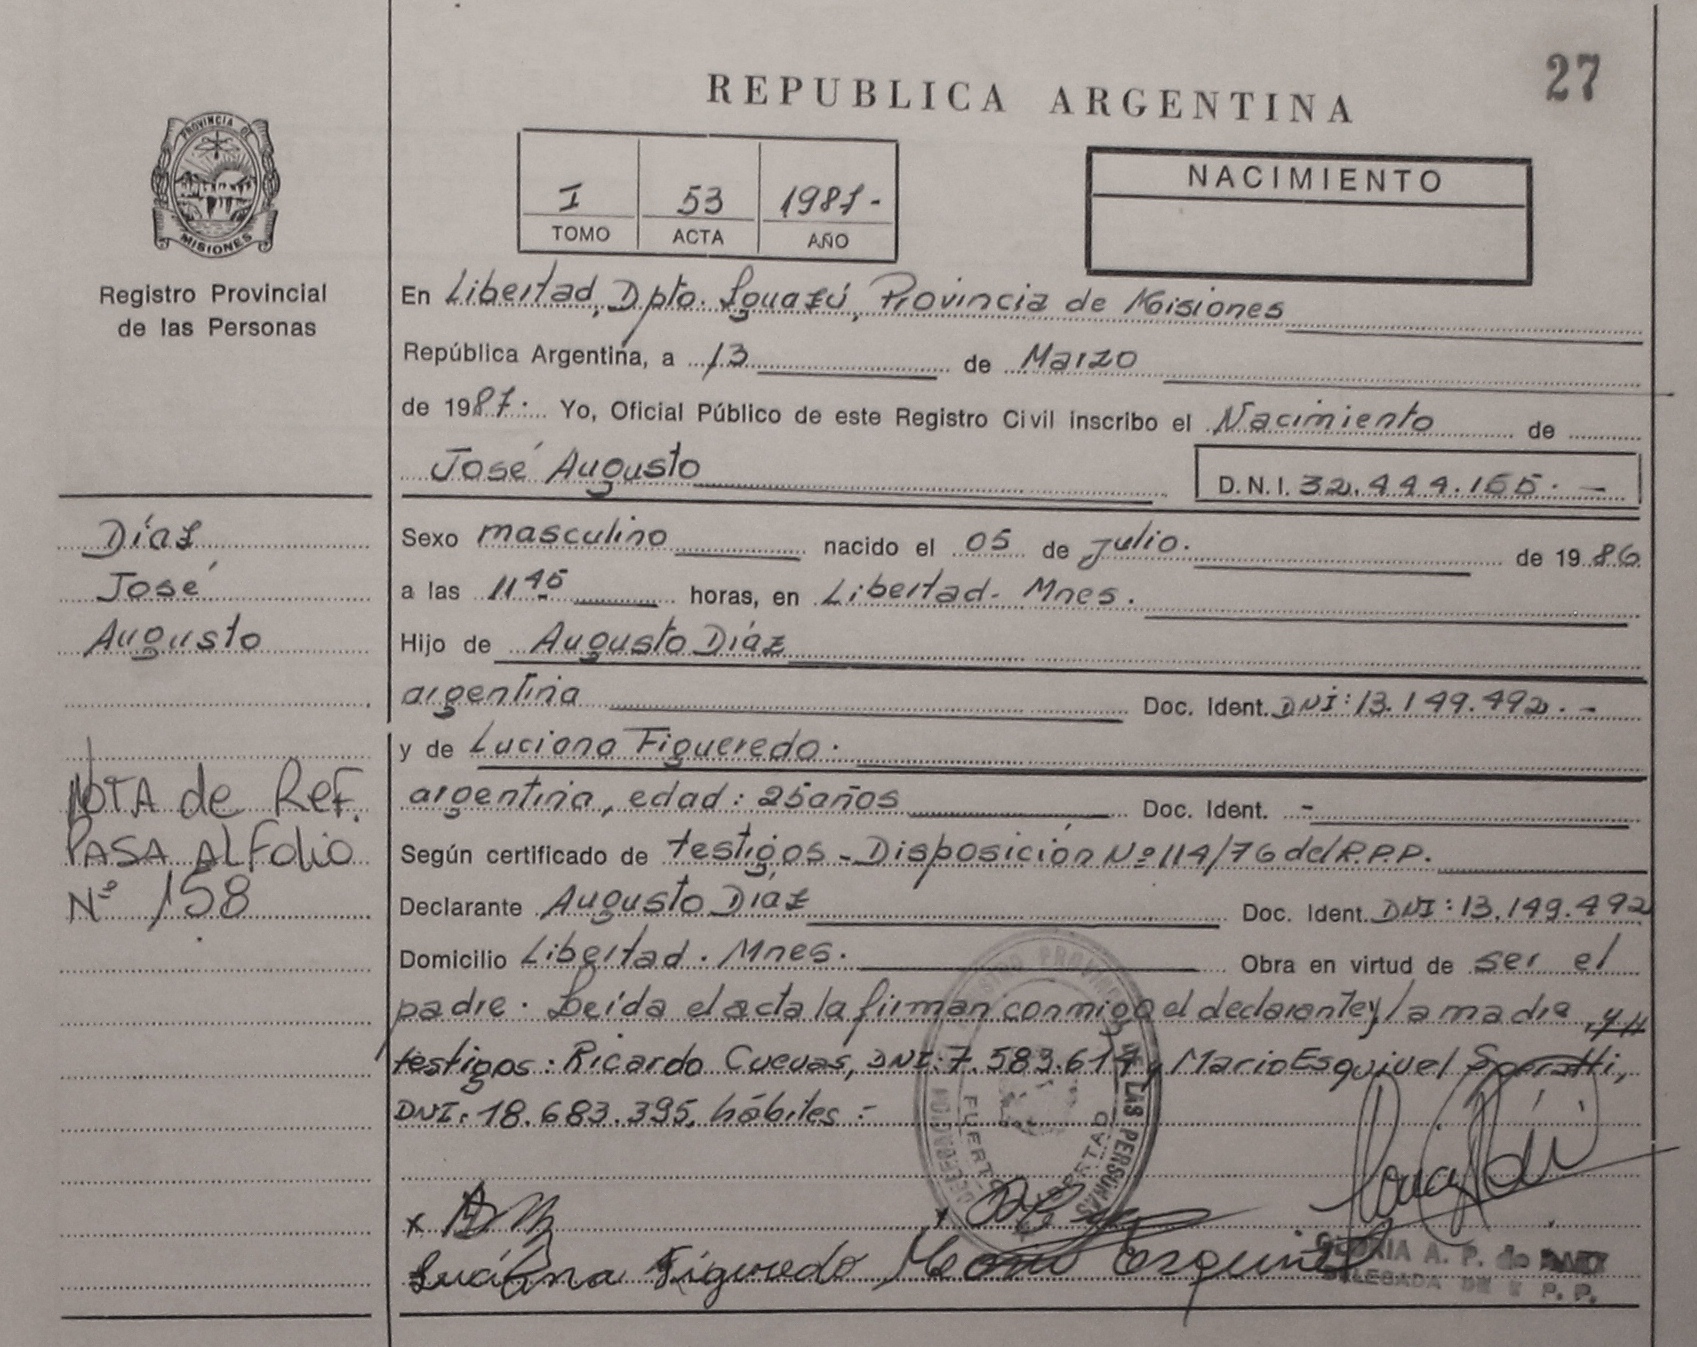 27
REPUBLICA ARGENTINA
PROVINCIA DE
MISIONES
Registro Provincial
de las Personas
I 53 1987-
TOMO ACTA AÑO
NACIMIENTO
En Libertad, Dpto. Iguazú, Provincia de Misiones
República Argentina, a 13 de Marzo
de 1987. Yo, Oficial Público de este Registro Civil inscribo el Nacimiento de
José Augusto D.N.I. 32.444.165.-
Díaz
José
Augusto
Sexo masculino nacido el 05 de julio. de 1986
a las 11 45 horas, en Libertad- Mnes.
Hijo de Augusto Díaz
argentina Doc. Ident. DNI: 13.149.492.-
y de Luciana Figueredo.
argentina, edad: 25 años Doc. Ident. -
Según certificado de testigos - Disposición Nº 114/76 del R.P.P.
Declarante Augusto Díaz Doc. Ident. DNI: 13.149.492
Domicilio Libertad. Mnes. Obra en virtud de ser el
padre. Leída el acta la firman conmigo el declarante y la madre, y
testigos: Ricardo Cuevas, DNI: 7.583.614, Mario Esquivel
DNI: 18.683.395, hábiles:-
NOTA de REF.
PASA AL Folio
Nº 158
LAS PERSONAS
Luciana Figueredo Mario Esquivel
GLORIA A. P. de
DELEGADA DE P. P.